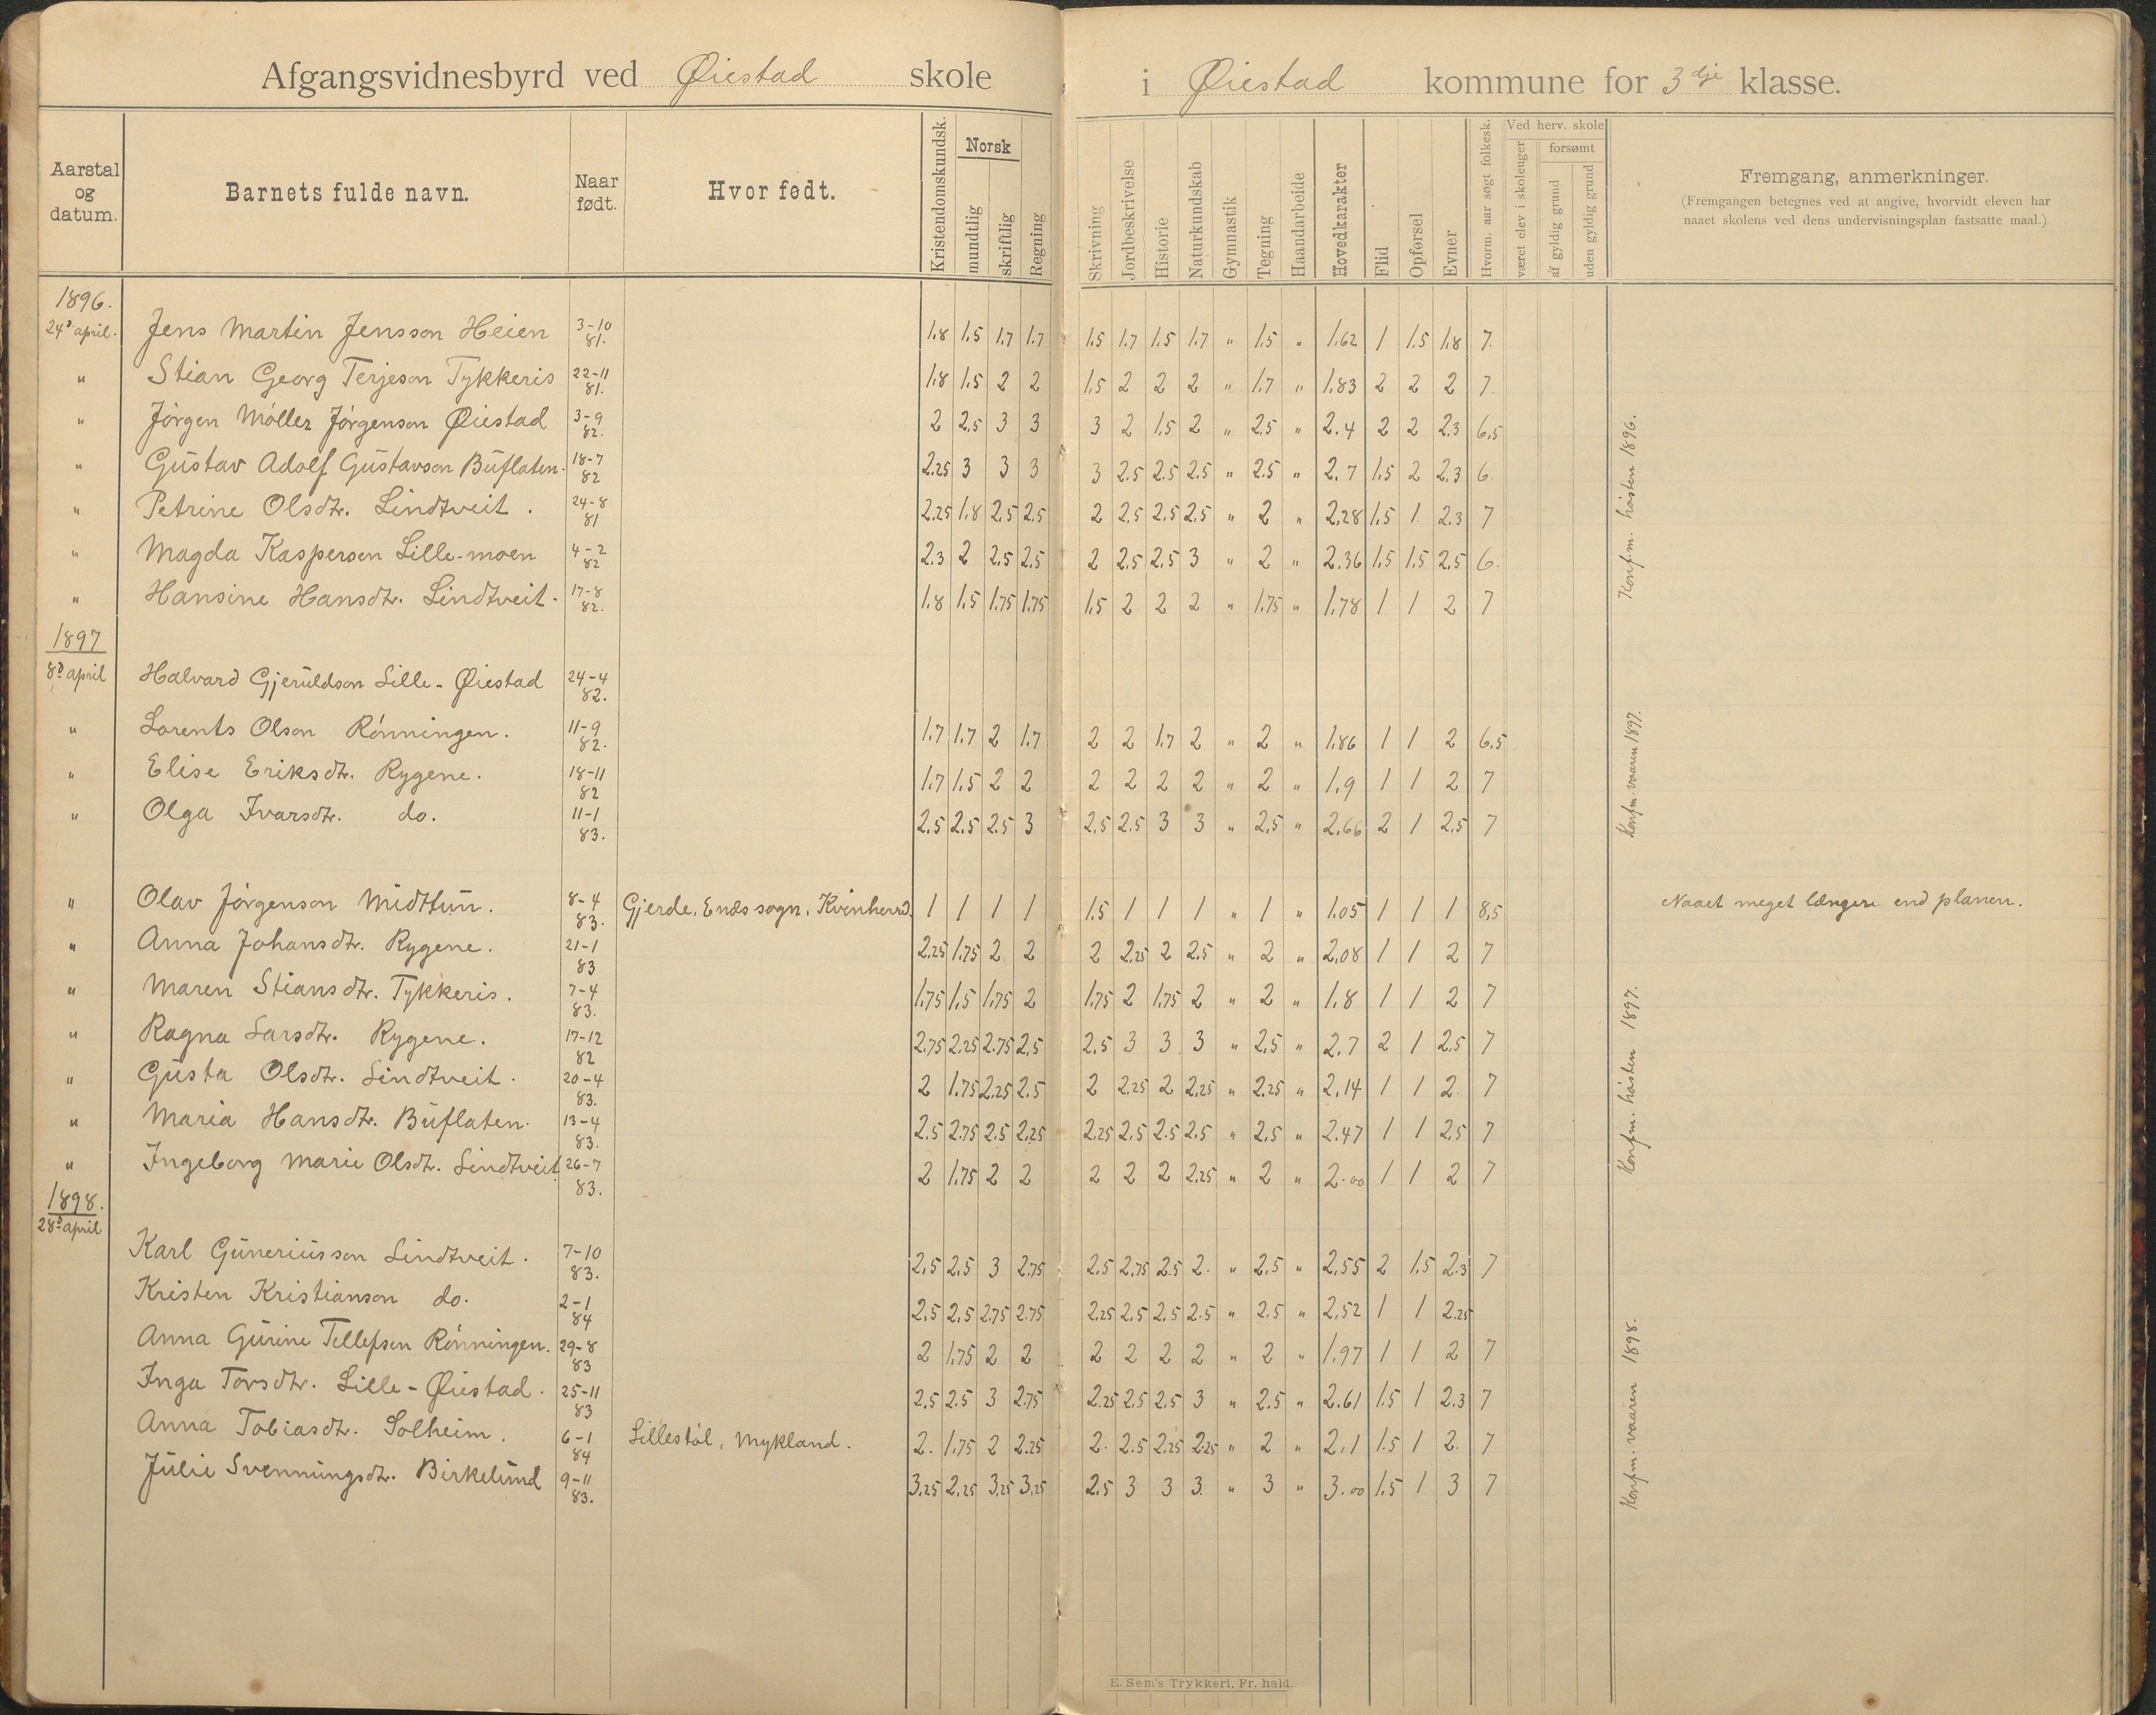 Afgangsvidnesbyrd ved Øiestad skole i Øiestad kommune for 3dje klasse.
Aarstal og datum. | Barnets fulde navn. | Naar født. | Hvor født. | Kristendomskundsk. | Norsk mundtlig | skriftlig | Regning | Skrivning | Jordbeskrivelse | Historie | Naturkundskab | Gymnastik | Tegning | Haandarbeide | Hovedkarakter | Flid | Opførsel | Evner | Hvorm. aar søgt folkesk. | Ved herv. skole | været elev i skoleuger | forsømt | af gyldig grund | uden gyldig grund | Fremgang, anmerkninger.
(Fremgangen betegnes ved at angive, hvorvidt eleven har
naaet skolens ved dens undervisningsplan fastsatte maal.)
1896.
24d april. Jens Martin Jensson Heien 3-10 81. 1.8 1.5 1.7 1.7 1.5 1.7 1.5 1.7 " 1.5 " 1.62 1 1.5 1.8 7.
" Stian Georg Terjeson Tykkeris 22-11 81. 1.8 1.5 2 2 1.5 2 2 2 " 1.7 " 1.83 2 2 2 7
" Jörgen Möller Jörgenson Øiestad 3-9 82. 2 2.5 3 3 3 2 1.5 2 " 2.5 " 2.4 2 2 2.3 6.5
" Gustav Adolf Gustavson Buflaten. 18-7 82 2.25 3 3 3 3 2.5 2.5 2.5 " 2.5 " 2.7 1.5 2 2.3 6.
" Petrine Olsdtr. Lindtveit. 24-8 81 2.25 1.8 2.5 2.5 2 2.5 2.5 2.5 " 2 " 2.28 1.5 1 2.3 7
" Magda Kaspersen Lille-moen 4-2 82 2.3 2 2.5 2.5 2 2.5 2.5 3 " 2 " 2.36 1.5 1.5 2.5 6.
" Hansine Hansdtr. Lindtveit. 17-8 82. 1.8 1.5 1.75 1.75 1.5 2 2 2 " 1.75 " 1.78 1 1 2 7
Konf.m. hösten 1896.
1897
8d april Halvard Gjeruldson Lille-Øiestad 24-4 82.
" Lorents Olson Rönningen. 11-9 82. 1.7 1.7 2 1.7 2 2 1.7 2 " 2 " 1.86 1 1 2 6.5
" Elise Eriksdtr. Rygene. 18-11 82 1.7 1.5 2 2 2 2 2 2 " 2 " 1.9 1 1 2 7
" Olga Ivarsdtr. do. 11-1 83. 2.5 2.5 2.5 3 2.5 2.5 3 3 " 2.5 " 2.66 2 1 2.5 7
Konfm. vaaren 1897.
" Olav Jörgenson Midttun. 8-4 83. Gjerde, Enes sogn, Kvinherred. 1 1 1 1 1.5 1 1 1 " 1 " 1.05 1 1 1 8.5 Naaet meget længere end planen.
" Anna Johansdtr. Rygene. 21-1 83 2.25 1.75 2 2 2 2.25 2 2.5 " 2 " 2.08 1 1 2 7
" Maren Stiansdtr. Tykkeris. 7-4 83. 1.75 1.5 1.75 2 1.75 2 1.75 2 " 2 " 1.8 1 1 2 7
" Ragna Larsdtr. Rygene. 17-12 82 2.75 2.25 2.75 2.5 2.5 3 3 3 " 2.5 " 2.7 2 1 2.5 7
" Gusta Olsdtr. Lindtveit. 20-4 83. 2 1.75 2.25 2.5 2 2.25 2 2.25 " 2.25 " 2.14 1 1 2. 7
" Maria Hansdtr. Buflaten. 13-4 83. 2.5 2.75 2.5 2.25 2.25 2.5 2.5 2.5 " 2.5 " 2.47 1 1 2.5 7
" Ingeborg Marie Olsdtr. Lindtveit 26-7 83. 2 1.75 2 2 2 2 2 2.25 " 2 " 2.00 1 1 2 7
Konfm. hösten 1897.
1898.
28d april
Karl Guneriusson Lindtveit. 7-10 83. 2.5 2.5 3 2.75 2.5 2.75 2.5 2. " 2.5 " 2.55 2 1.5 2.3 7
Kristen Kristianson do. 2-1 84 2.5 2.5 2.75 2.75 2.25 2.5 2.5 2.5 " 2.5 " 2.52 1 1 2.25
Anna Gurine Tellefsen Rönningen. 29-8 83 2 1.75 2 2 2 2 2 2 " 2 " 1.97 1 1 2 7
Inga Torsdtr. Lille-Øiestad. 25-11 83 2.5 2.5 3 2.75 2.25 2.5 2.5 3 " 2.5 " 2.61 1.5 1 2.3 7
Anna Tobiasdtr. Solheim. 6-1 84 Lillestöl, Mykland. 2. 1.75 2 2.25 2. 2.5 2.25 2.25 " 2 " 2.1 1.5 1 2. 7
Julie Svenningsdtr. Birkelund 9-11 83. 3.25 2.25 3.25 3.25 2.5 3 3 3. " 3 " 3.00 1.5 1 3 7
Konfm. vaaren 1898.
E. Sem's Trykkeri, Fr. hald.